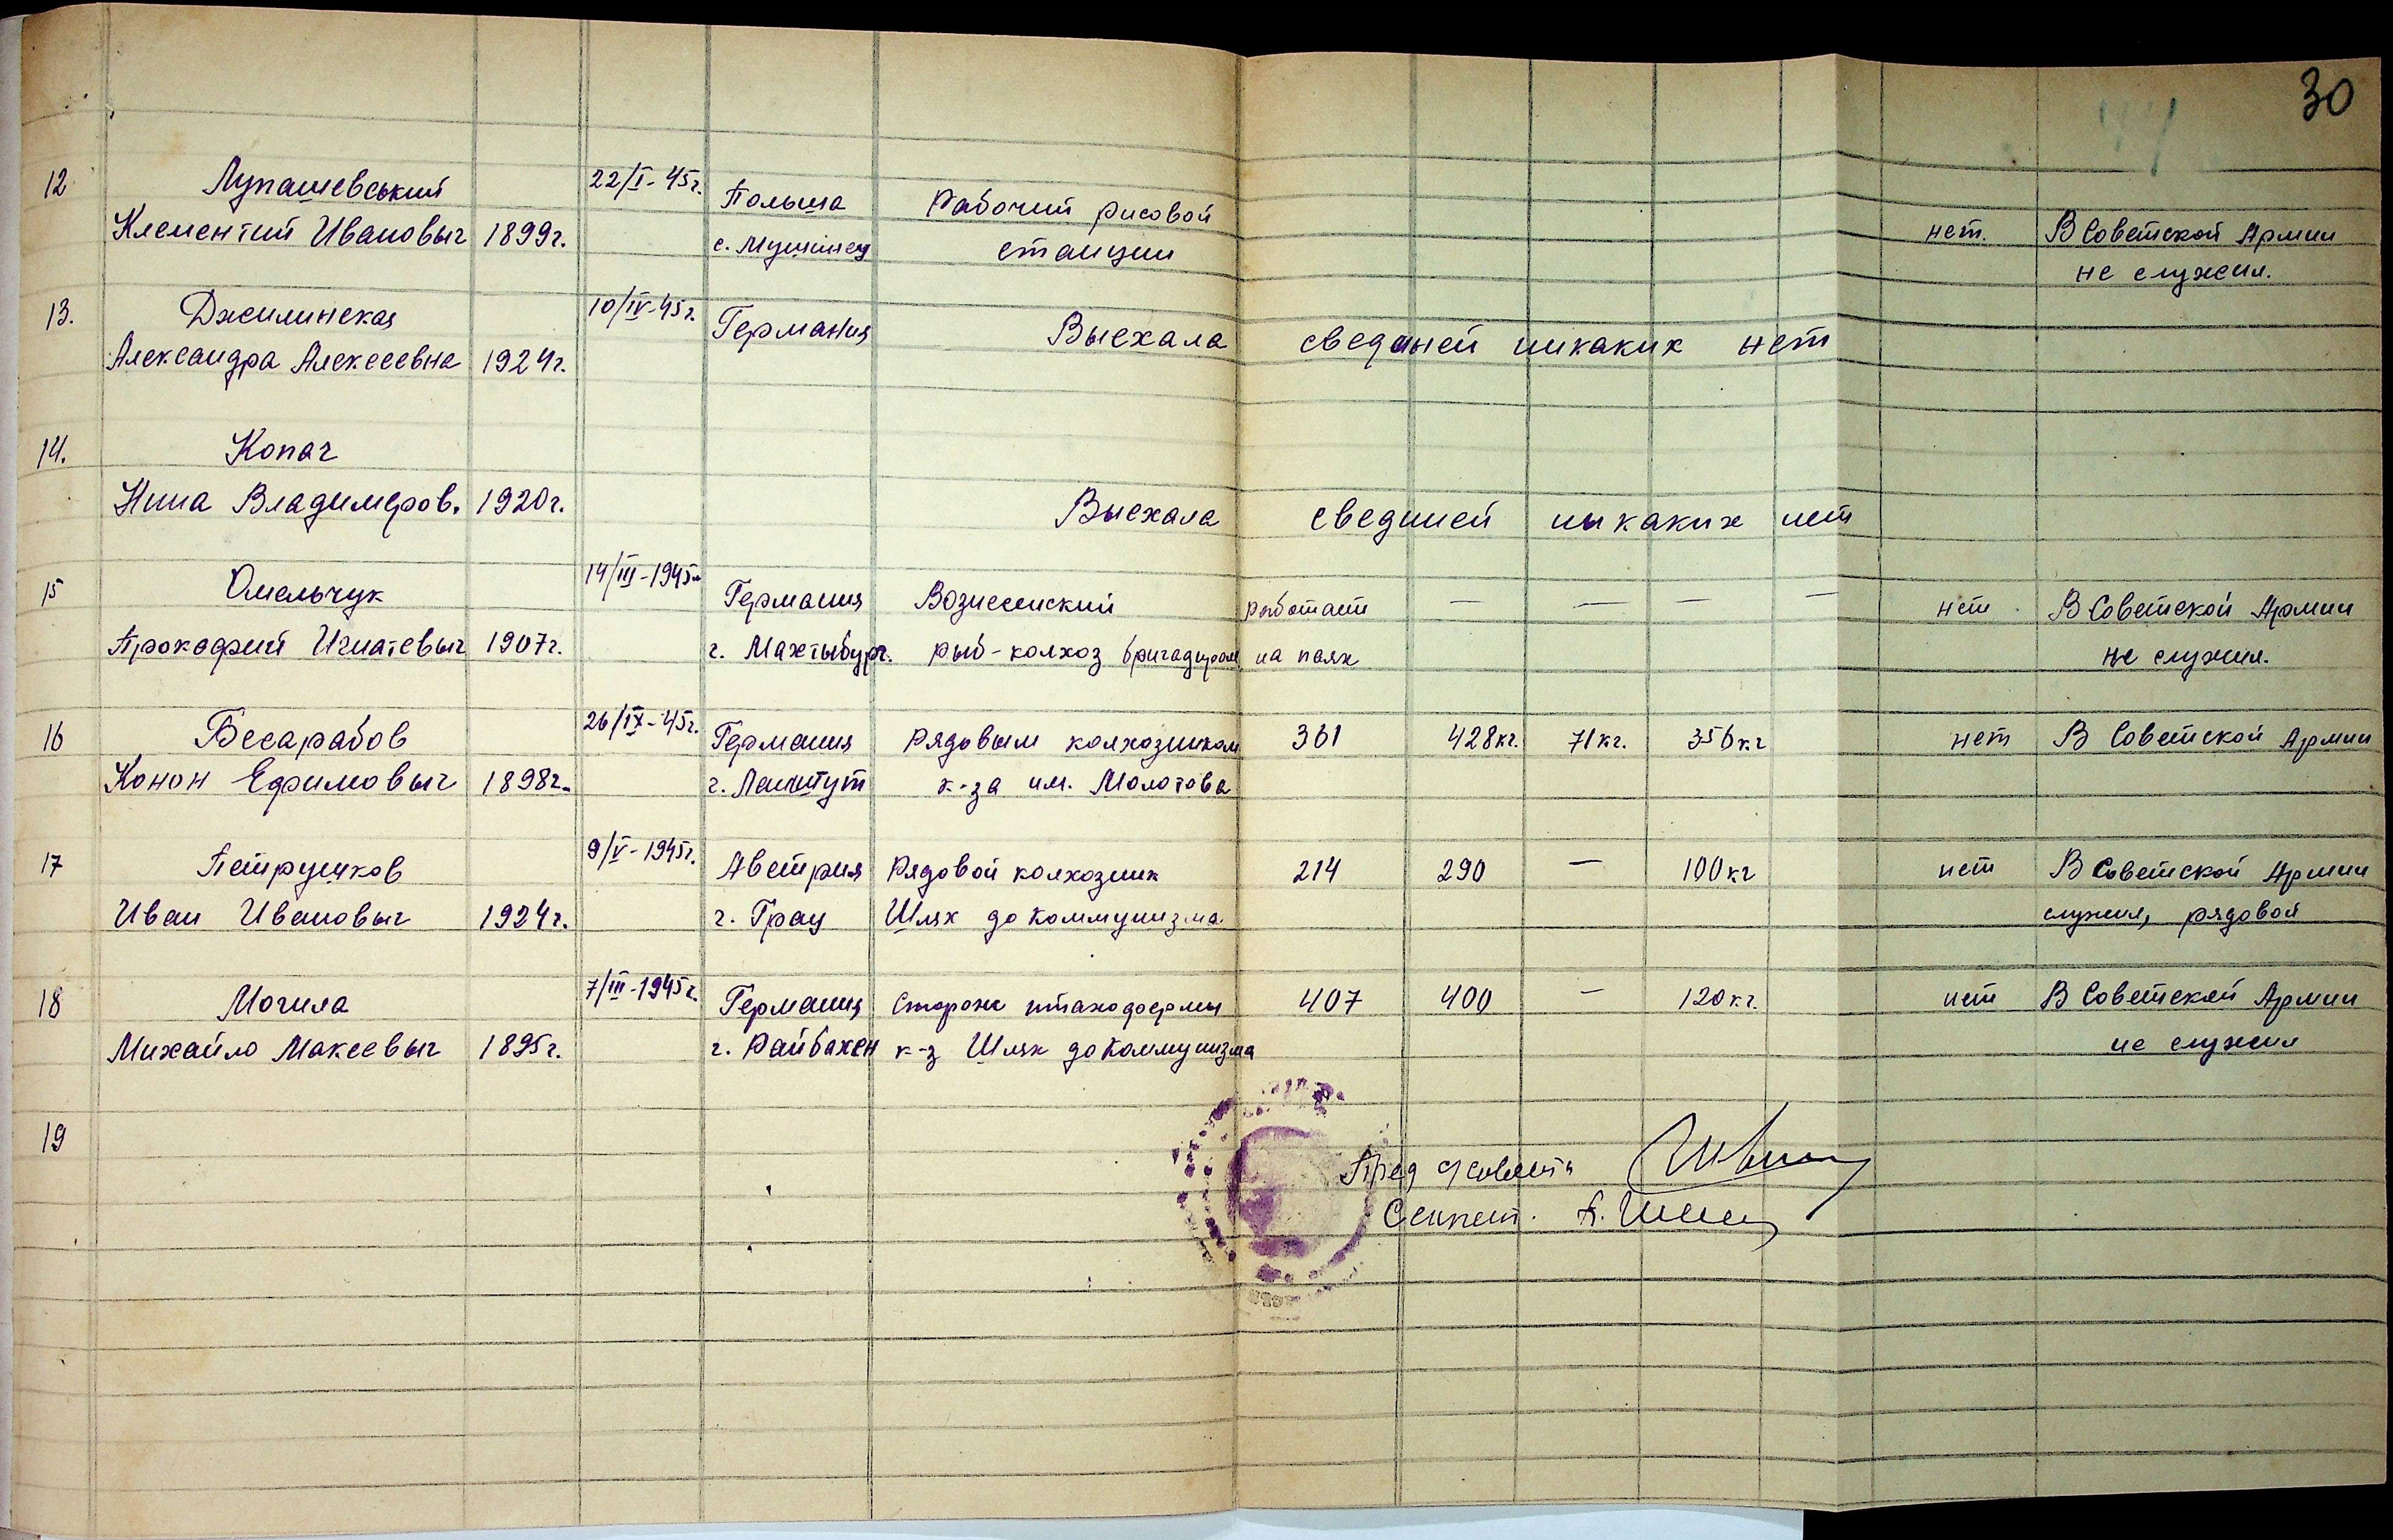 30
12 Лупашевський 22/I-45г. Польша Рабочий рисовой
Клементий Ивановыч 1899г. с. станции нет. В Советской Армии
не служил.
13. Джилинская 10/IV-45г. Германия Выехала сведеней никаких нет
Александра Алексеевна 1924г.
14. Копач
Нина Владимеров. 1920г. Выехала сведеней ныкаких нет
15 Омельчук 14/III-1945г Германия Вознесенский работает — — — — нет. В Советской Армии
Прокофий Игнатевыч 1907г. г. Махтыбург. рыб-колхоз бригадиром на паях не служил.
16 Бесарабов 26/IX-45г. Германия Рядовым колхозником 361 428кг. 71кг. 356кг нет В Советской Армии
Конон Ефимовыч 1898г. г. к-за им. Молотова
17 Петрушков 9/V-1945г. Австрия Рядовой колхозник 214 290 — 100кг нет В Советской Армии
Иван Ивановыч 1924г. г. Грац Шлях до Коммунизма служил, рядовой
18 Могила 7/III-1945г. Германия Сторож птахофермы 407 400 — 120кг. нет В Советской Армии
Михайло Макеевыч 1895г. г. Райбахен к-з Шлях до Коммунизма не служил
19
Пред с/совета
Секрет.